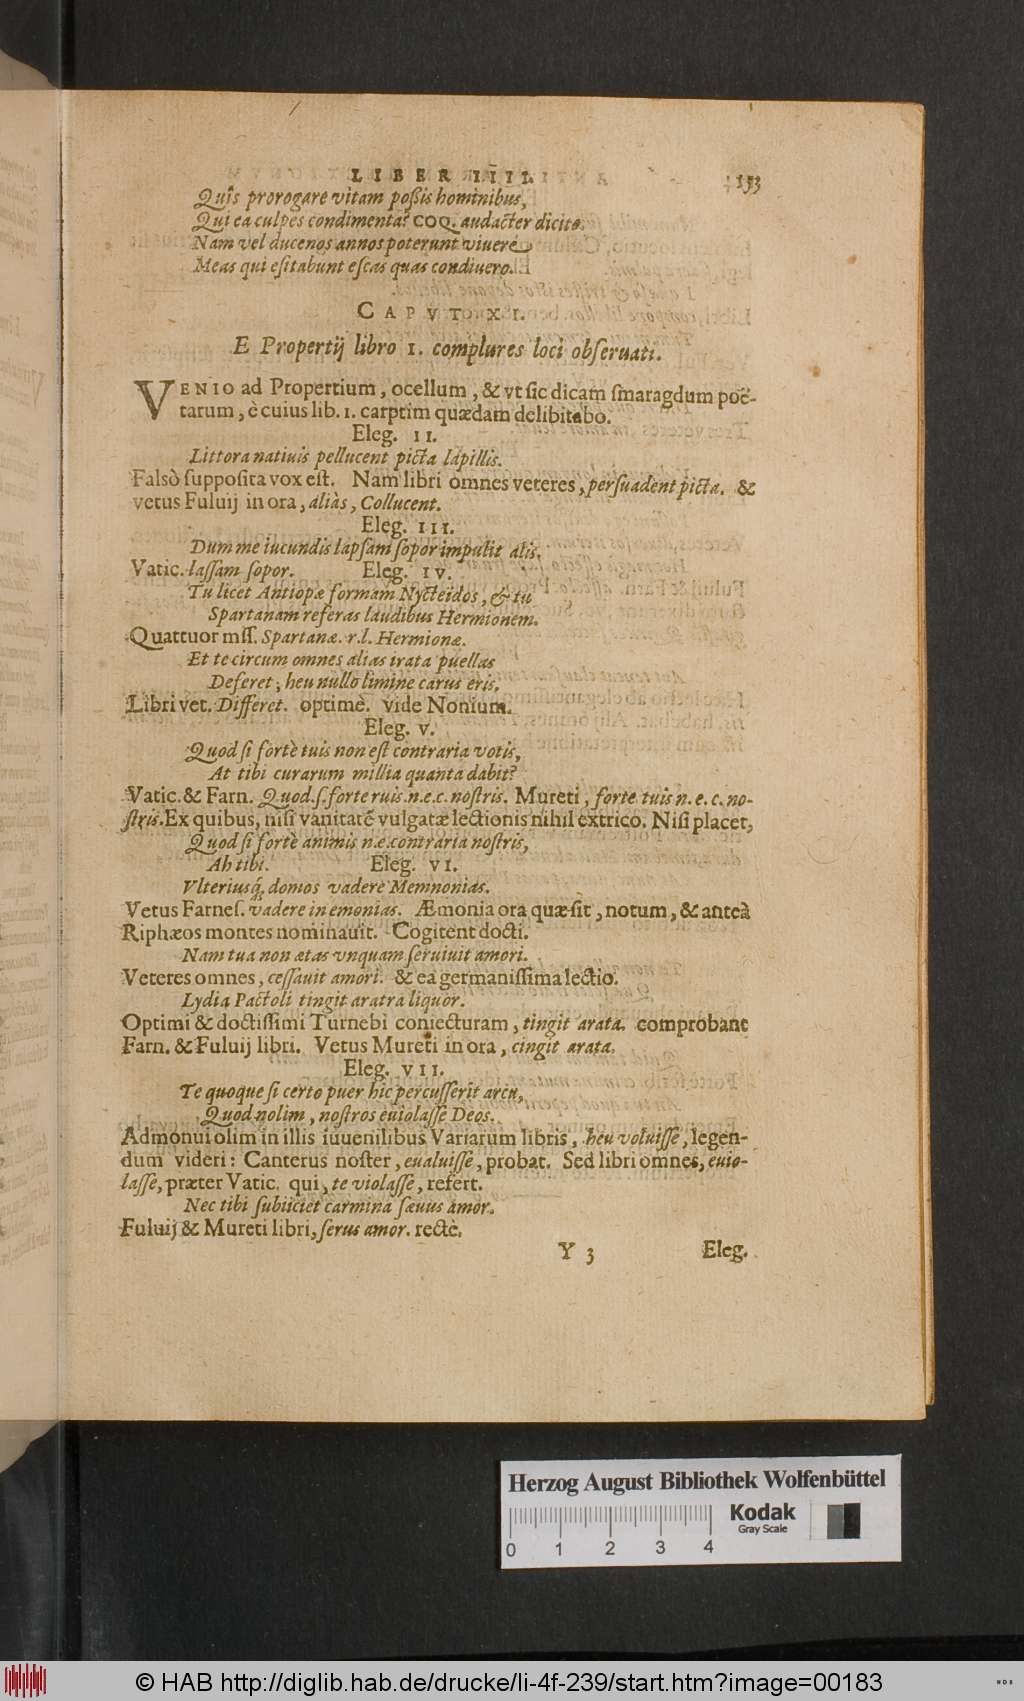 LIBER IIII. 153
Quîs prorogare vitam poßis hominibus,
Qui ea culpes condimenta? COQ. audacter dicito.
Nam vel ducenos annos poterunt viuere
Meas qui esitabunt escas quas condiuero.
CAPVT XI.
E Propertij libro 1. complures loci obseruati.
VENIO ad Propertium, ocellum, & vt sic dicam smaragdum poë-
tarum, è cuius lib. 1. carptim quædam delibitabo.
Eleg. II.
Littora natiuis pellucent picta lapillis.
Falsò supposita vox est. Nam libri omnes veteres, persuadent picta. &
vetus Fuluij in ora, aliàs, Collucent.
Eleg. III.
Dum me iucundis lapsam sopor impulit alis.
Vatic. lassam sopor. Eleg. IV.
Tu licet Antiopæ formam Nycteidos, & tu
Spartanam referas laudibus Hermionem.
Quattuor mss. Spartanæ. r.l. Hermionæ.
Et te circum omnes alias irata puellas
Deferet; heu nullo limine carus eris.
Libri vet. Differet. optimè. vide Nonium.
Eleg. V.
Quod si fortè tuis non est contraria votis,
At tibi curarum millia quanta dabit?
Vatic. & Farn. Quod.s.forte ruis.n.e.c.nostris. Mureti, forte tuis n.e.c.no-
stris. Ex quibus, nisi vanitatē vulgatæ lectionis nihil extrico. Nisi placet,
Quod si fortè animis n.e.contraria nostris,
Ah tibi. Eleg. VI.
Vlteriusq́, domos vadere Memnonias.
Vetus Farnes. vadere in emonias. Æmonia ora quæ sit, notum, & anteà
Riphæos montes nominauit. Cogitent docti.
Nam tua non ætas vnquam seruiuit amori.
Veteres omnes, cessauit amori. & ea germanissima lectio.
Lydia Pactoli tingit aratra liquor.
Optimi & doctissimi Turnebi coniecturam, tingit arata. comprobant
Farn. & Fuluij libri. Vetus Mureti in ora, cingit arata.
Eleg. VII.
Te quoque si certo puer hic percusserit arcu,
Quod nolim, nostros euiolasse Deos.
Admonui olim in illis iuuenilibus Variarum libris, heu voluisse, legen-
dum videri: Canterus noster, eualuisse, probat. Sed libri omnes, euio-
lasse, præter Vatic. qui, te violasse, refert.
Nec tibi subiiciet carmina sæuus amor.
Fuluij & Mureti libri, serus amor. rectè.
Y 3 Eleg.
Herzog August Bibliothek Wolfenbüttel
Kodak
Gray Scale
0 1 2 3 4
© HAB http://diglib.hab.de/drucke/li-4f-239/start.htm?image=00183